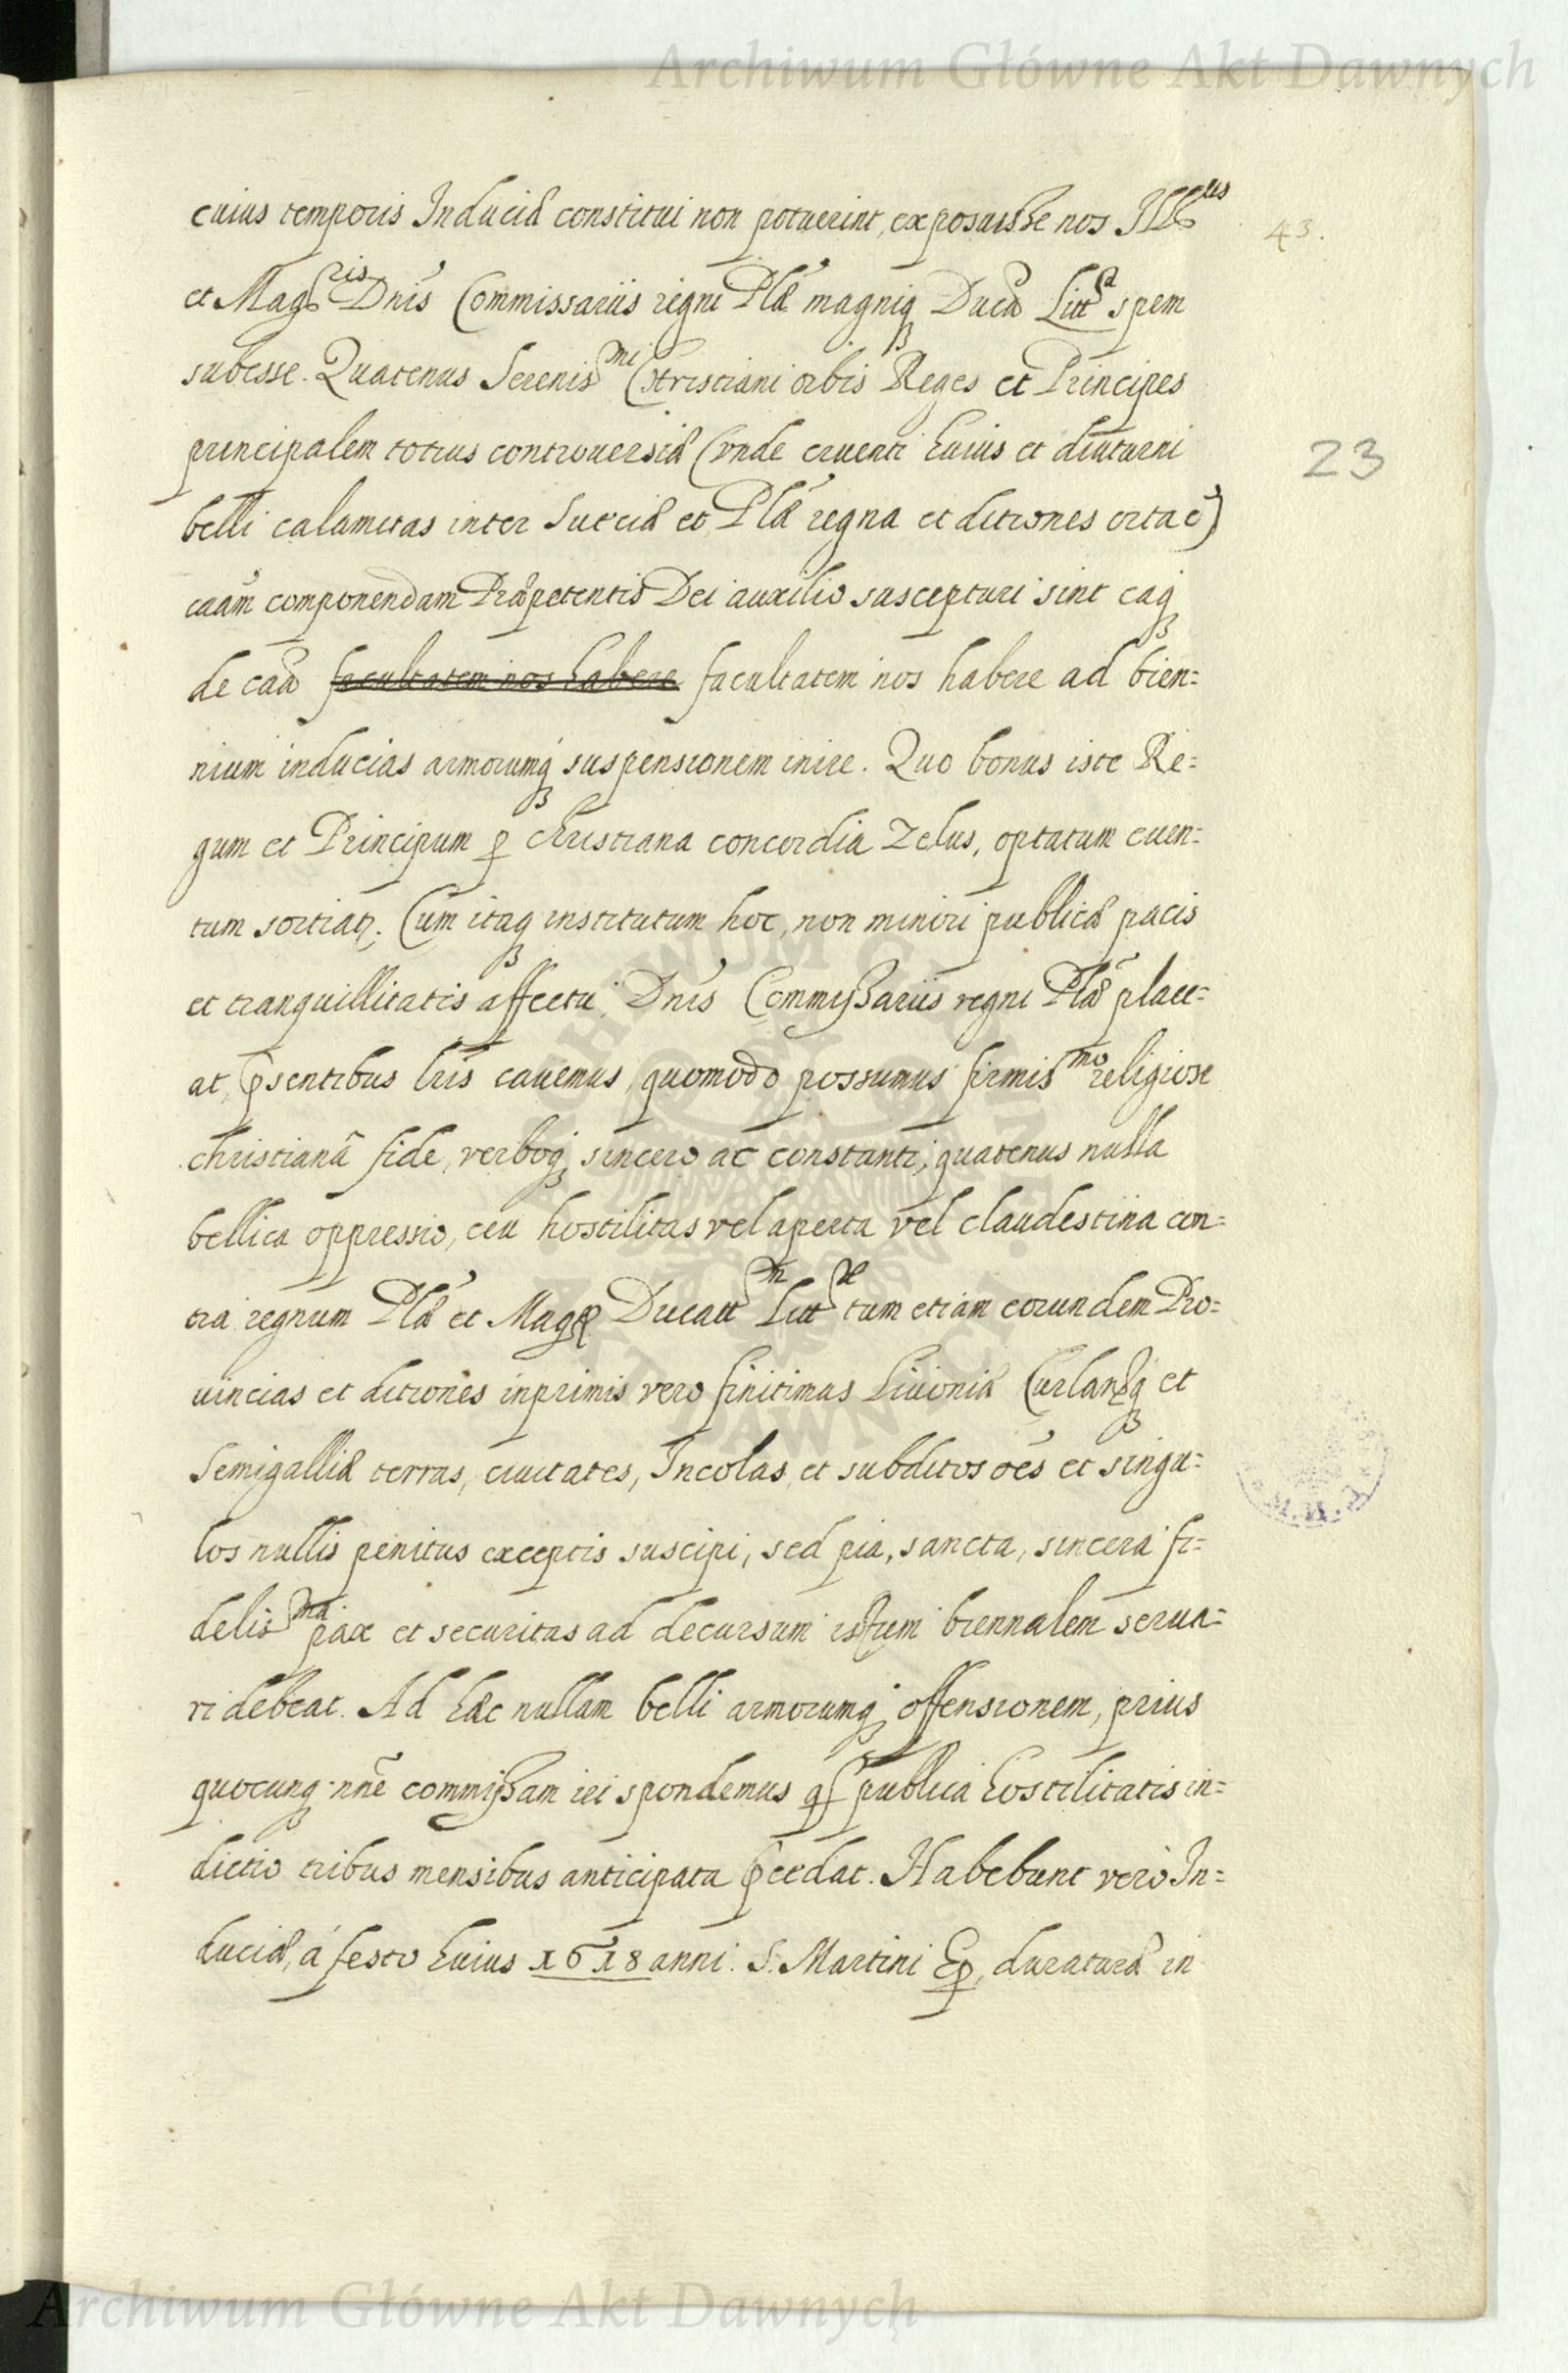 Archiwum Główne Akt Dawnych
cuius temporis Induciæ constitui non potuerint, exposuisse nos Ill^us
43.
et Mag^ris Dnis Commissariis regni Plæ magniq Ducæ Litt^æ spem
subesse. Quatenus Serenis^mi Christiani orbis Reges et Principes
principalem totius controuersiæ (vnde cruenti huius et diuturni
23
belli calamitas inter Sueciæ et Plæ regna et ditiones orta e)
caām componendam Præpotentis Dei auxilio suscepturi sint eaq
de caā facultatem nos habere facultatem nos habere ad bien=
nium inducias armorumq suspensionem inire. Quo bonus iste Re=
gum et Principum p christiana concordia Zelus, optatum euen=
tum sortiat. Cum itaq institutum hoc, non minori publicæ pacis
et tranquillitatis affectu Dnis Commissariis regni Plæ place=
at, psentibus lris cauemus quomodo possumus firmis^mo religiose
christianâ fide, verboq sincero ac constanti, quatenus nulla
bellica oppressio, ceu hostilitas vel aperta vel claudestina con=
tra regnum Plæ et Mag Ducatt^m Litt^æ tum etiam eorundem Pro=
uincias et ditiones inprimis vero finitimas Liuoniæ Curlandq et
Semigalliæ terras, ciuitates, Incolas et subditos oēs et singu=
los nullis penitus exceptis suscipi, sed pia, sancta, sincera fi=
delis^ma pax et securitas ad decursum istum biennalem serua=
ri debeat. Ad hæc nullam belli armorumq offensionem, prius
quocunq nne commissam iri spondemus q publica hostilitatis in=
dictio tribus mensibus anticipata pcedat. Habebunt vero In=
duciæ, á festo huius 1618 anni. S. Martini Ep, duraturæ in
Archiwum Główne Akt Dawnych